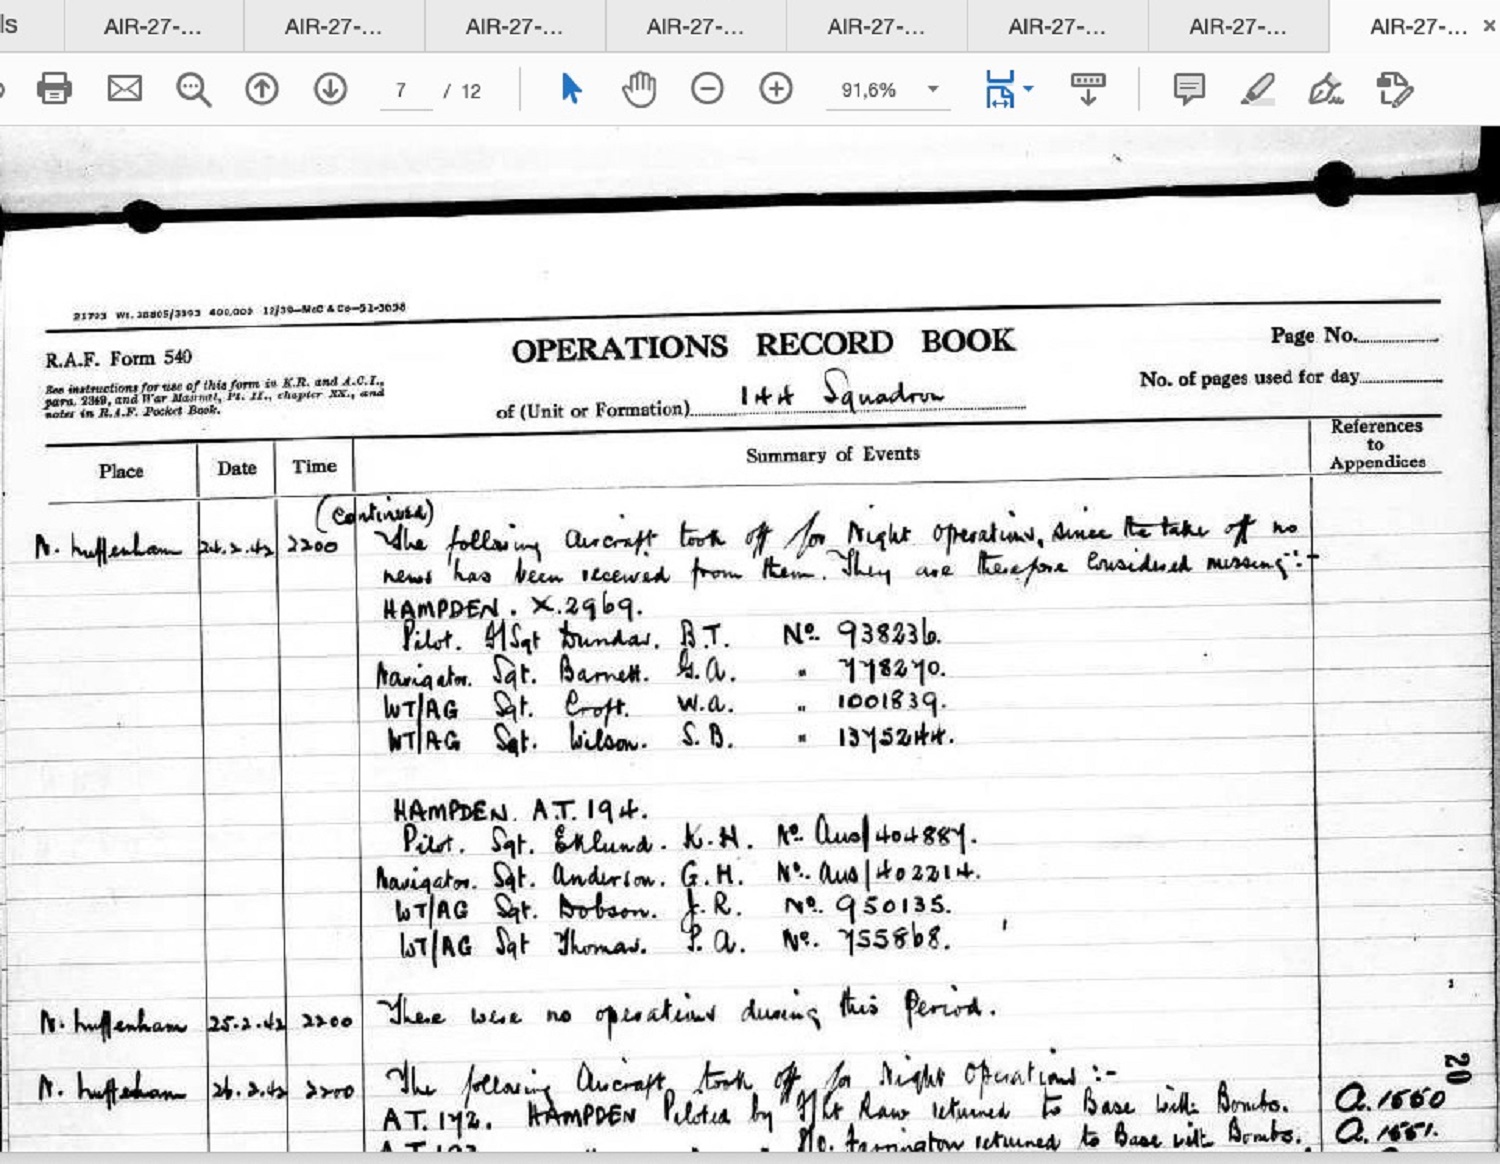 ls AIR-27-... AIR-27-... AIR-27-... AIR-27-... AIR-27-... AIR-27-... AIR-27-... AIR-27-... ×
7 / 12 91,6%
21793 Wt. 38805/3393 400,000 12/39—McC & Co—51-3058
R.A.F. Form 540
See instructions for use of this form in K.R. and A.C.I.,
para. 2349, and War Manual, Pt. II., chapter XX., and
notes in R.A.F. Pocket Book.
OPERATIONS RECORD BOOK
of (Unit or Formation) 144 Squadron
Page No.
No. of pages used for day
Place Date Time Summary of Events References to Appendices
(Continued)
N. Luffenham 24.2.42 2200 The following Aircraft took off for Night Operations, since the take off no
news has been received from them. They are therefore Considered missing:-
HAMPDEN. X.2969.
Pilot. F/Sgt Dundas. B.T. No. 938236.
Navigator. Sgt. Barnett. G.A. " 778270.
WT/AG Sgt. Croft. W.A. " 1001839.
WT/AG Sgt. Wilson. S.B. " 1375244.
HAMPDEN. A.T. 194.
Pilot. Sgt. Eklund. K.H. No. Aus/404887.
Navigator. Sgt. Anderson. G.H. No. Aus/402214.
WT/AG Sgt. Dobson. J.R. No. 950135.
WT/AG Sgt Thomas. P.A. No. 755868.
N. Luffenham 25.2.42 2200 There were no operations during this Period.
N. Luffenham 26.2.42 2200 The following Aircraft took off for Night Operations:-
AT.172. HAMPDEN Piloted by F/Lt Raw returned to Base with Bombs. A.1550
P/O. Farrington returned to Base with Bombs. A.1551.
20